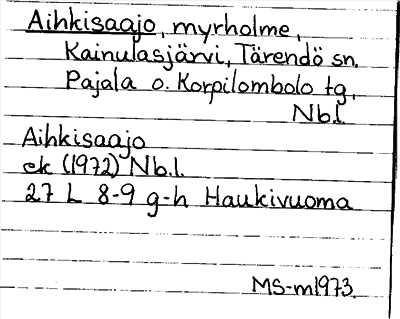 Aihkisaajo, myrholme,
Kainulasjärvi, Tärendö sn.
Pajala o. Korpilombolo tg.
Nb.l.
Aihkisaajo
ek (1972) Nb.l.
27 L 8-9 g-h Haukivuoma
MS-m1973.